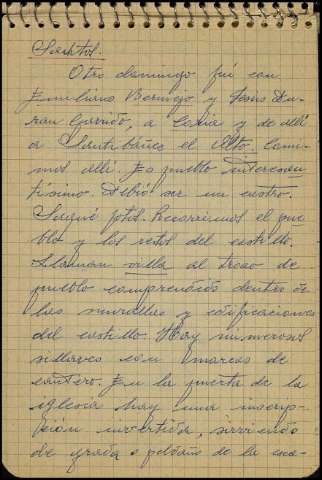 Otro domingo fui con
Emiliano Bermejo y Jesús Du-
rán Garrido, a Coria y de allí
a Santibáñez el Alto. Comi-
mos allí. Es pueblo interesan-
tísimo. Debió ser un castro.
Saqué fotos. Recorrimos el pue-
blo y los restos del castillo.
Llaman villa al trozo de
pueblo comprendido dentro de
las murallas y edificaciones
del castillo. Hay numerosos
sillares con marcas de
cantero. En la puerta de la
iglesia hay una inscrip-
ción invertida, sirviendo
de grada o peldaño de la esca-